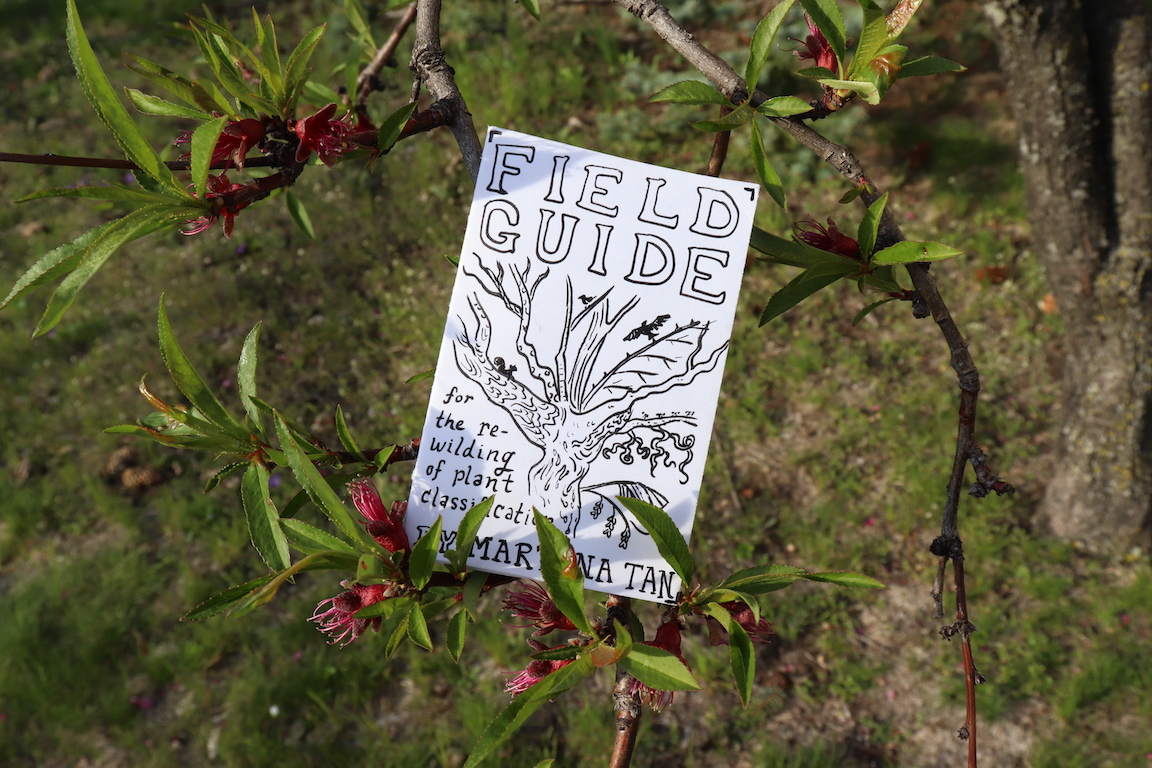 FIELD
GUIDE
for
the re-
wilding
of plant
classification
BY MARTINA TAN